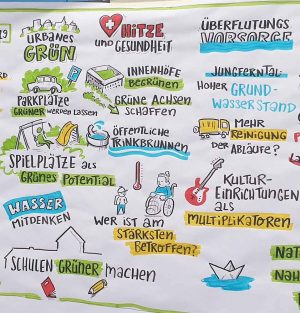 URBANES
GRÜN
HITZE
UND GESUNDHEIT
ÜBERFLUTUNGS
VORSORGE
PARKPLÄTZE
GRÜNER WERDEN LASSEN
INNENHÖFE
BEGRÜNEN
GRÜNE ACHSEN
SCHAFFEN
JUNGFERNTAL:
HOHER GRUND-
WASSERSTAND
ÖFFENTLICHE
TRINKBRUNNEN
MEHR
REINIGUNG
DER ABLÄUFE?
SPIELPLÄTZE ALS
GRÜNES POTENTIAL
WASSER
MITDENKEN
WER IST AM
STÄRKSTEN
BETROFFEN?
KULTUR-
EINRICHTUNGEN
ALS
MULTIPLIKATOREN
SCHULEN GRÜNER MACHEN
NAT
NAH